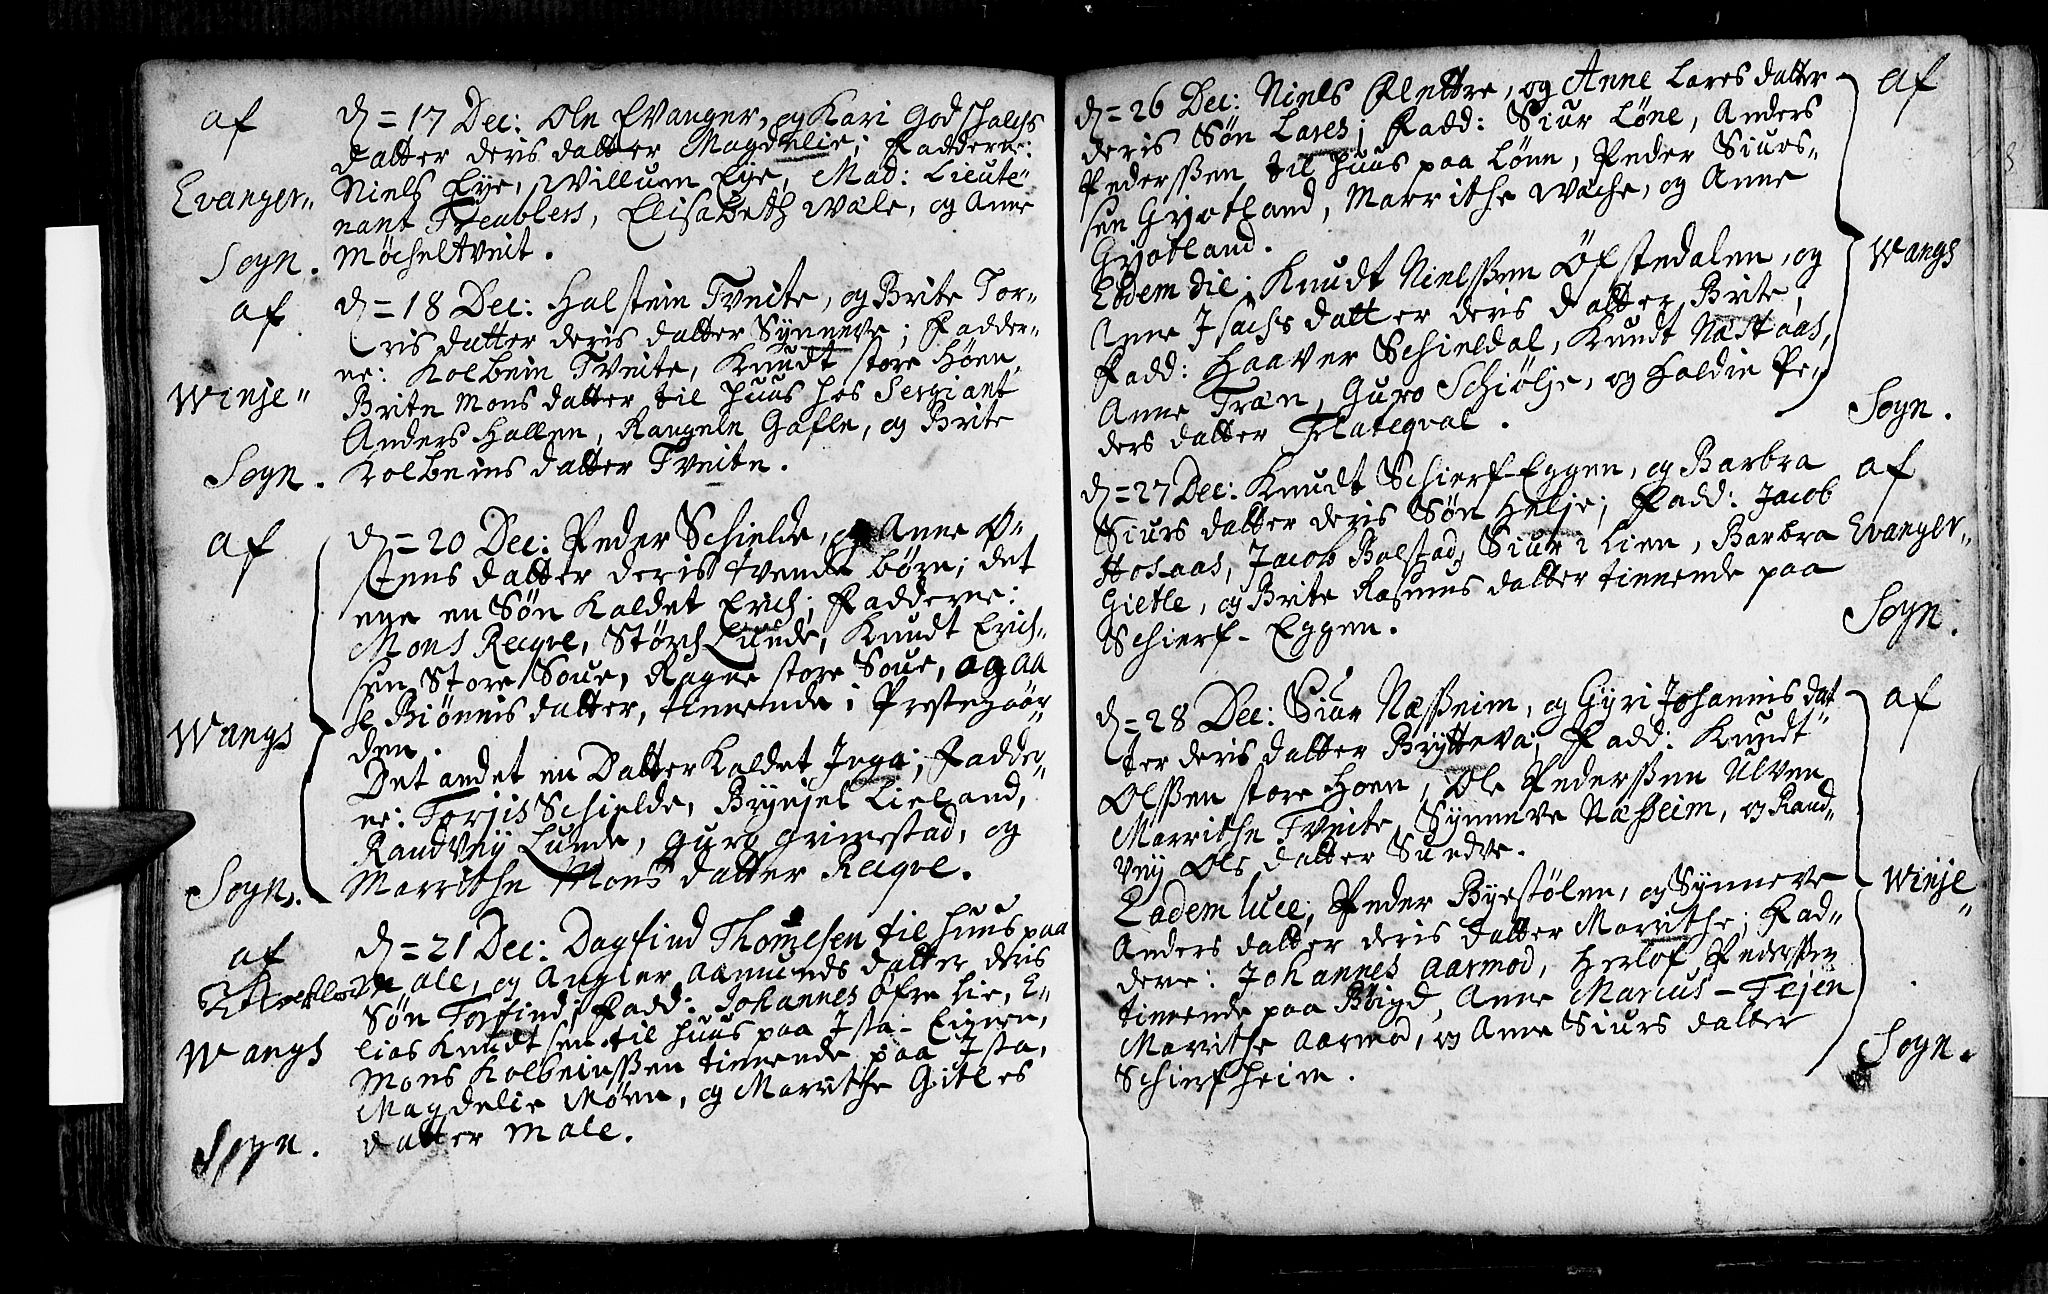 af
Evanger„
Sogn.
D = 17 Dec: Ole Evanger, og Kari Godschalchs
datter deris datter Magdelie; Fadderne:
Niels Eye, Willum Eye, Mad: Lieute„
nant Treublers, Elisabeth Wale, og Anne
Møcheltveit.
af
Winje„
Sogn.
D = 18 Dec: Halstein Tveite, og Brite Tor„
ris datter deris datter Synneve; Fadder„
ne: Kolbein Tveite, Knudt store Høen,
Brite Mons datter til Huus hos Sergiant
Anders Hallen, Rangele Gafle, og Brite
Kolbeins datter Tveite.
af
Wangs
Sogn.
D = 20 Dec: Peder Schielde, og Anne Ø„
stens datter deris tvende børn; det
ene en Søn kaldet Erich; Fadderne:
Mons Recqve, Størch Lunde, Knudt Erich„
sen Store Soue, Ragne store Soue, og Aa
se Biønnis datter, tienende i Prestegaar„
den.
Det andet en Datter kaldet Inga; Fadder„
ne: Torjis Schielde, Brynjel Lieland,
Randvey Lunde, Guro Grimestad, og
Marrithe Mons datter Recqve.
af
Wangs
Sogn.
D = 21 Dec: Dagfind Thomesen til huus paa
Male, og Angier Aamunds datter deris
Søn Torfind; Fadd: Johannes Øfre Lie, E„
lias Knudtsen til huus paa Ista-Eignen,
Mons Kolbeinssen tienende paa Ista,
Magdelie Møen, og Marrithe Gitles
datter Male.
D = 26 Dec: Niels Flettre, og Anne Lares datter
deris Søn Lares; Fadd: Siur Løne, Anders
Pederssen til huus paa Løne, Peder Siurs„
sen Gjotland, Marrithe Wiche, og Anne
Gjotland.
Eodem die; Knudt Nielssen Øfstedalen, og
Anne Isachs datter deris datter Brite;
Fadd: Haaver Schieldal, Knudt Næstaas,
Anne Træn, Guro Schiølje, og Holdie Pe„
ders datter Flateqval.
af
Wangs
Sogn.
D = 27 Dec: Knudt Schierf-Eggen, og Barbra
Siurs datter deris Søn Helje; Fadd: Jacob
Hosaas, Jacob Bolstad, Siur i Lien, Barbra
Gietle, og Brite Rasmus datter tienende paa
Schierf-Eggen.
af
Evanger„
Sogn.
D = 28 Dec: Siur Næssheim, og Gyri Johannis dat„
ter deris datter Brytteva; Fadd: Knudt
Olssen store Hoen, Ole Pederssen Ulven
Marrithe Tveite, Synneve Næssheim, og Rand„
vey Ols datter Suedve.
Eadem luce; Peder Byestølen, og Synneve
Anders datter deris datter Marrithe; Fad„
dere: Johannes Aarmod, Herlof Pederssen
tienende paa Bøigd, Anne Marcus-Tejen
Marrithe Aarmod, og Anne Siurs datter
Schierfheim.
af
Winje„
Sogn.